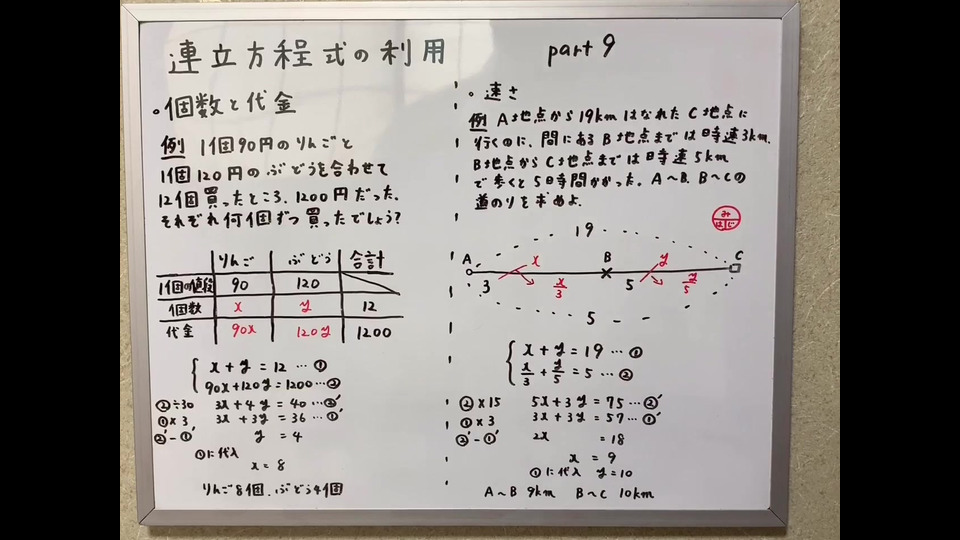 連立方程式の利用 part 9
。個数と代金
例 1個90円のりんごと
1個120円のぶどうを合わせて
12個買ったところ、1200円だった。
それぞれ何個ずつ買ったでしょう?
りんご ぶどう 合計
1個の値段 90 120
個数 x y 12
代金 90x 120y 1200
x + y = 12 … ①
90x+120y = 1200 … ②
②÷30 3x+4y = 40 … ②'
①×3 3x+3y = 36 … ①'
②'-①' y = 4
①に代入
x = 8
りんご8個、ぶどう4個
。速さ
例 A地点から19kmはなれたC地点に
行くのに、間にあるB地点までは時速3km、
B地点からC地点までは時速5km
で歩くと5時間かかった。A〜B、B〜Cの
道のりを求めよ。
み
は じ
19
A x B y C
3 x/3 5 y/5
5
x + y = 19 … ①
x/3 + y/5 = 5 … ②
②×15 5x+3y = 75 … ②'
①×3 3x+3y = 57 … ①'
②'-①' 2x = 18
x = 9
①に代入 y = 10
A〜B 9km B〜C 10km